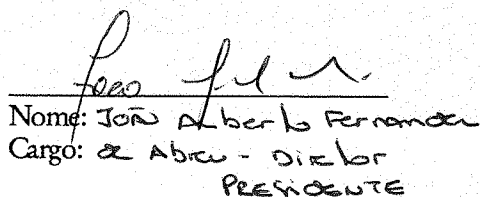 Nome: João Alberto Fernandes
Cargo: de Abreu - Diretor
PRESIDENTE